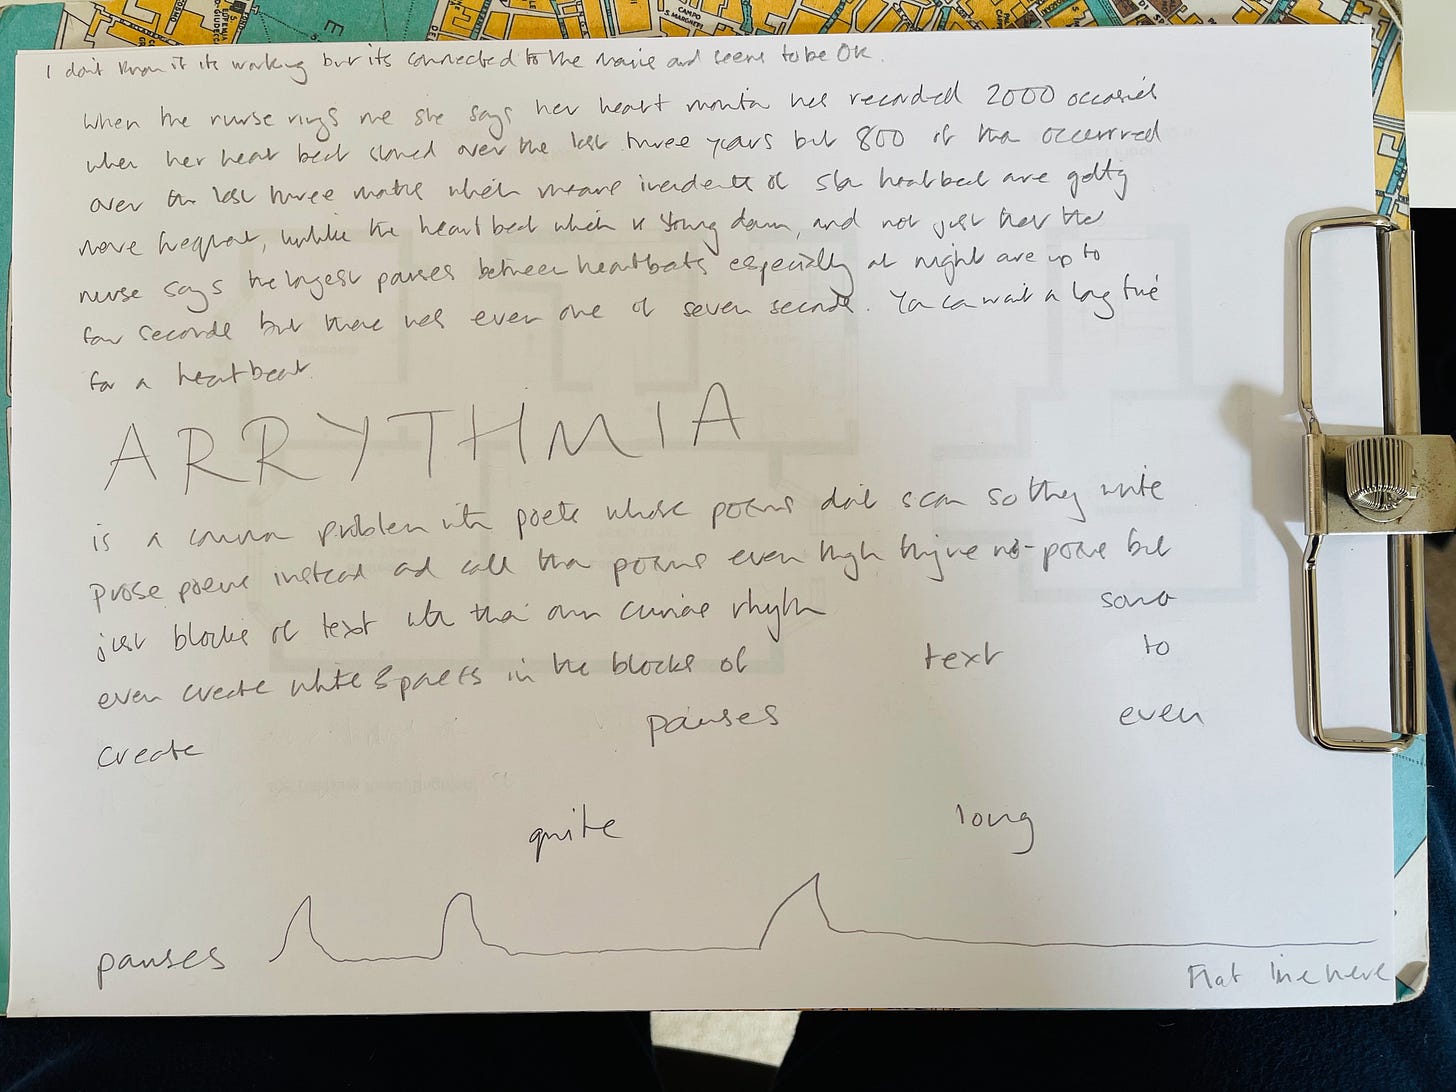 I don't know if its working but its connected to the mains and seems to be OK.
When the nurse rings me she says her heart monitor has recorded 2000 occasions
when her heart beat slowed over the last three years but 800 of them occurred
over the last three months which means incidents of slow heartbeat are getting
more frequent, unlike the heartbeat which is slowing down, and not just that the
nurse says the longest pauses between heartbeats especially at night are up to
four seconds but there was even one of seven seconds. You can wait a long time
for a heartbeat.
ARRYTHMIA
is a common problem with poets whose poems don't scan so they write
prose poems instead and call them poems even though they're not-poems but
just blocks of text with their own curious rhythm some
even create white spaces in the blocks of text to
create pauses even
quite long
pauses
Flat line here
CAMPO
S. MARGHERITA